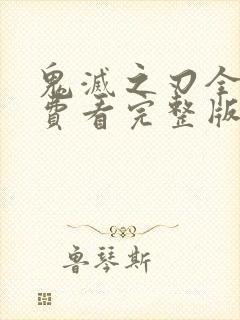 鬼滅之刃全
費看完整版
魯琴斯